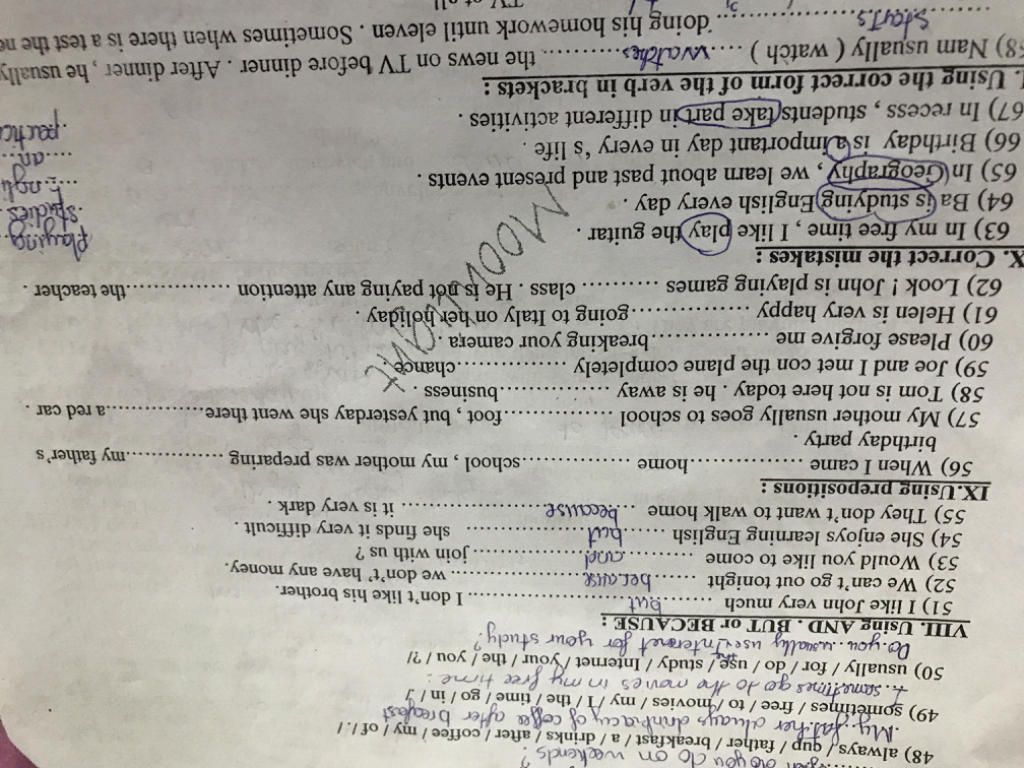 you do on weekends?
48) always / qup / father / breakfast / a / drinks / after / coffee / my / of / . /
My father always drink a cup of coffee after breafast
49) sometimes / free / to / movies / my / I / the / time / go / in /
I sometimes go to the movies in my free time.
50) usually / for / do / use / study / Internet / your / the / you / ?/
the
Do you usually use Internet for your study?
VIII. Using AND . BUT or BECAUSE :
51) I like John very much .......but....... I don't like his brother.
52) We can't go out tonight .......because....... we don't' have any money.
53) Would you like to come .......and....... join with us ?
54) She enjoys learning English .......but....... she finds it very difficult .
55) They don't want to walk home .......because....... it is very dark .
IX.Using prepositions :
56) When I came ..............home ..............school , my mother was preparing ..............my father's
birthday party .
57) My mother usually goes to school ..............foot , but yesterday she went there..............a red car .
58) Tom is not here today . he is away ..............business .
59) Joe and I met con the plane completely ..............chance .
60) Please forgive me ..............breaking your camera .
61) Helen is very happy ..............going to Italy on her holiday .
62) Look ! John is playing games .......... class . He is not paying any attention ..............the teacher .
X. Correct the mistakes :
63) In my free time , I like play the guitar .
playing
64) Ba is studying English every day .
studies
65) In Geography , we learn about past and present events .
66) Birthday is a important day in every 's life .
an
67) In recess , students take part in different activities .
I. Using the correct form of the verb in brackets :
68) Nam usually ( watch ) .......watches....... the news on TV before dinner . After dinner , he usually
starts .......doing his homework until eleven . Sometimes when there is a test the